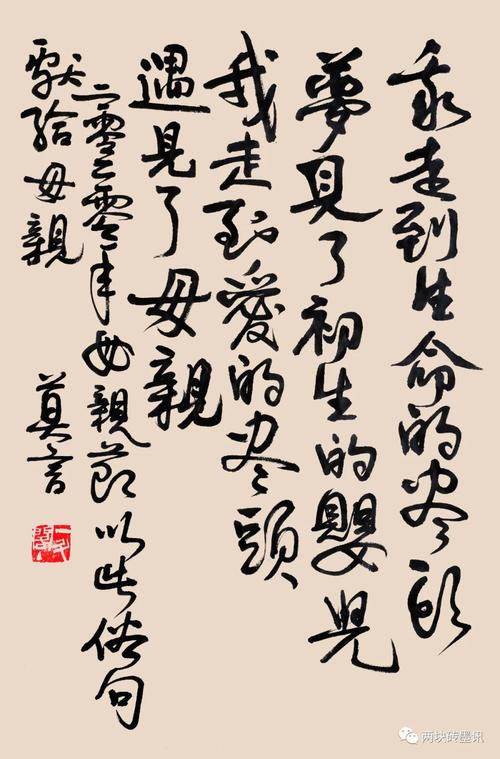 我走到生命的尽头
夢見了初生的嬰兒
我走到愛的尽頭
遇見了母親
二零二零年母親節以此俗句
獻給母親
莫言
两块砖墨讯